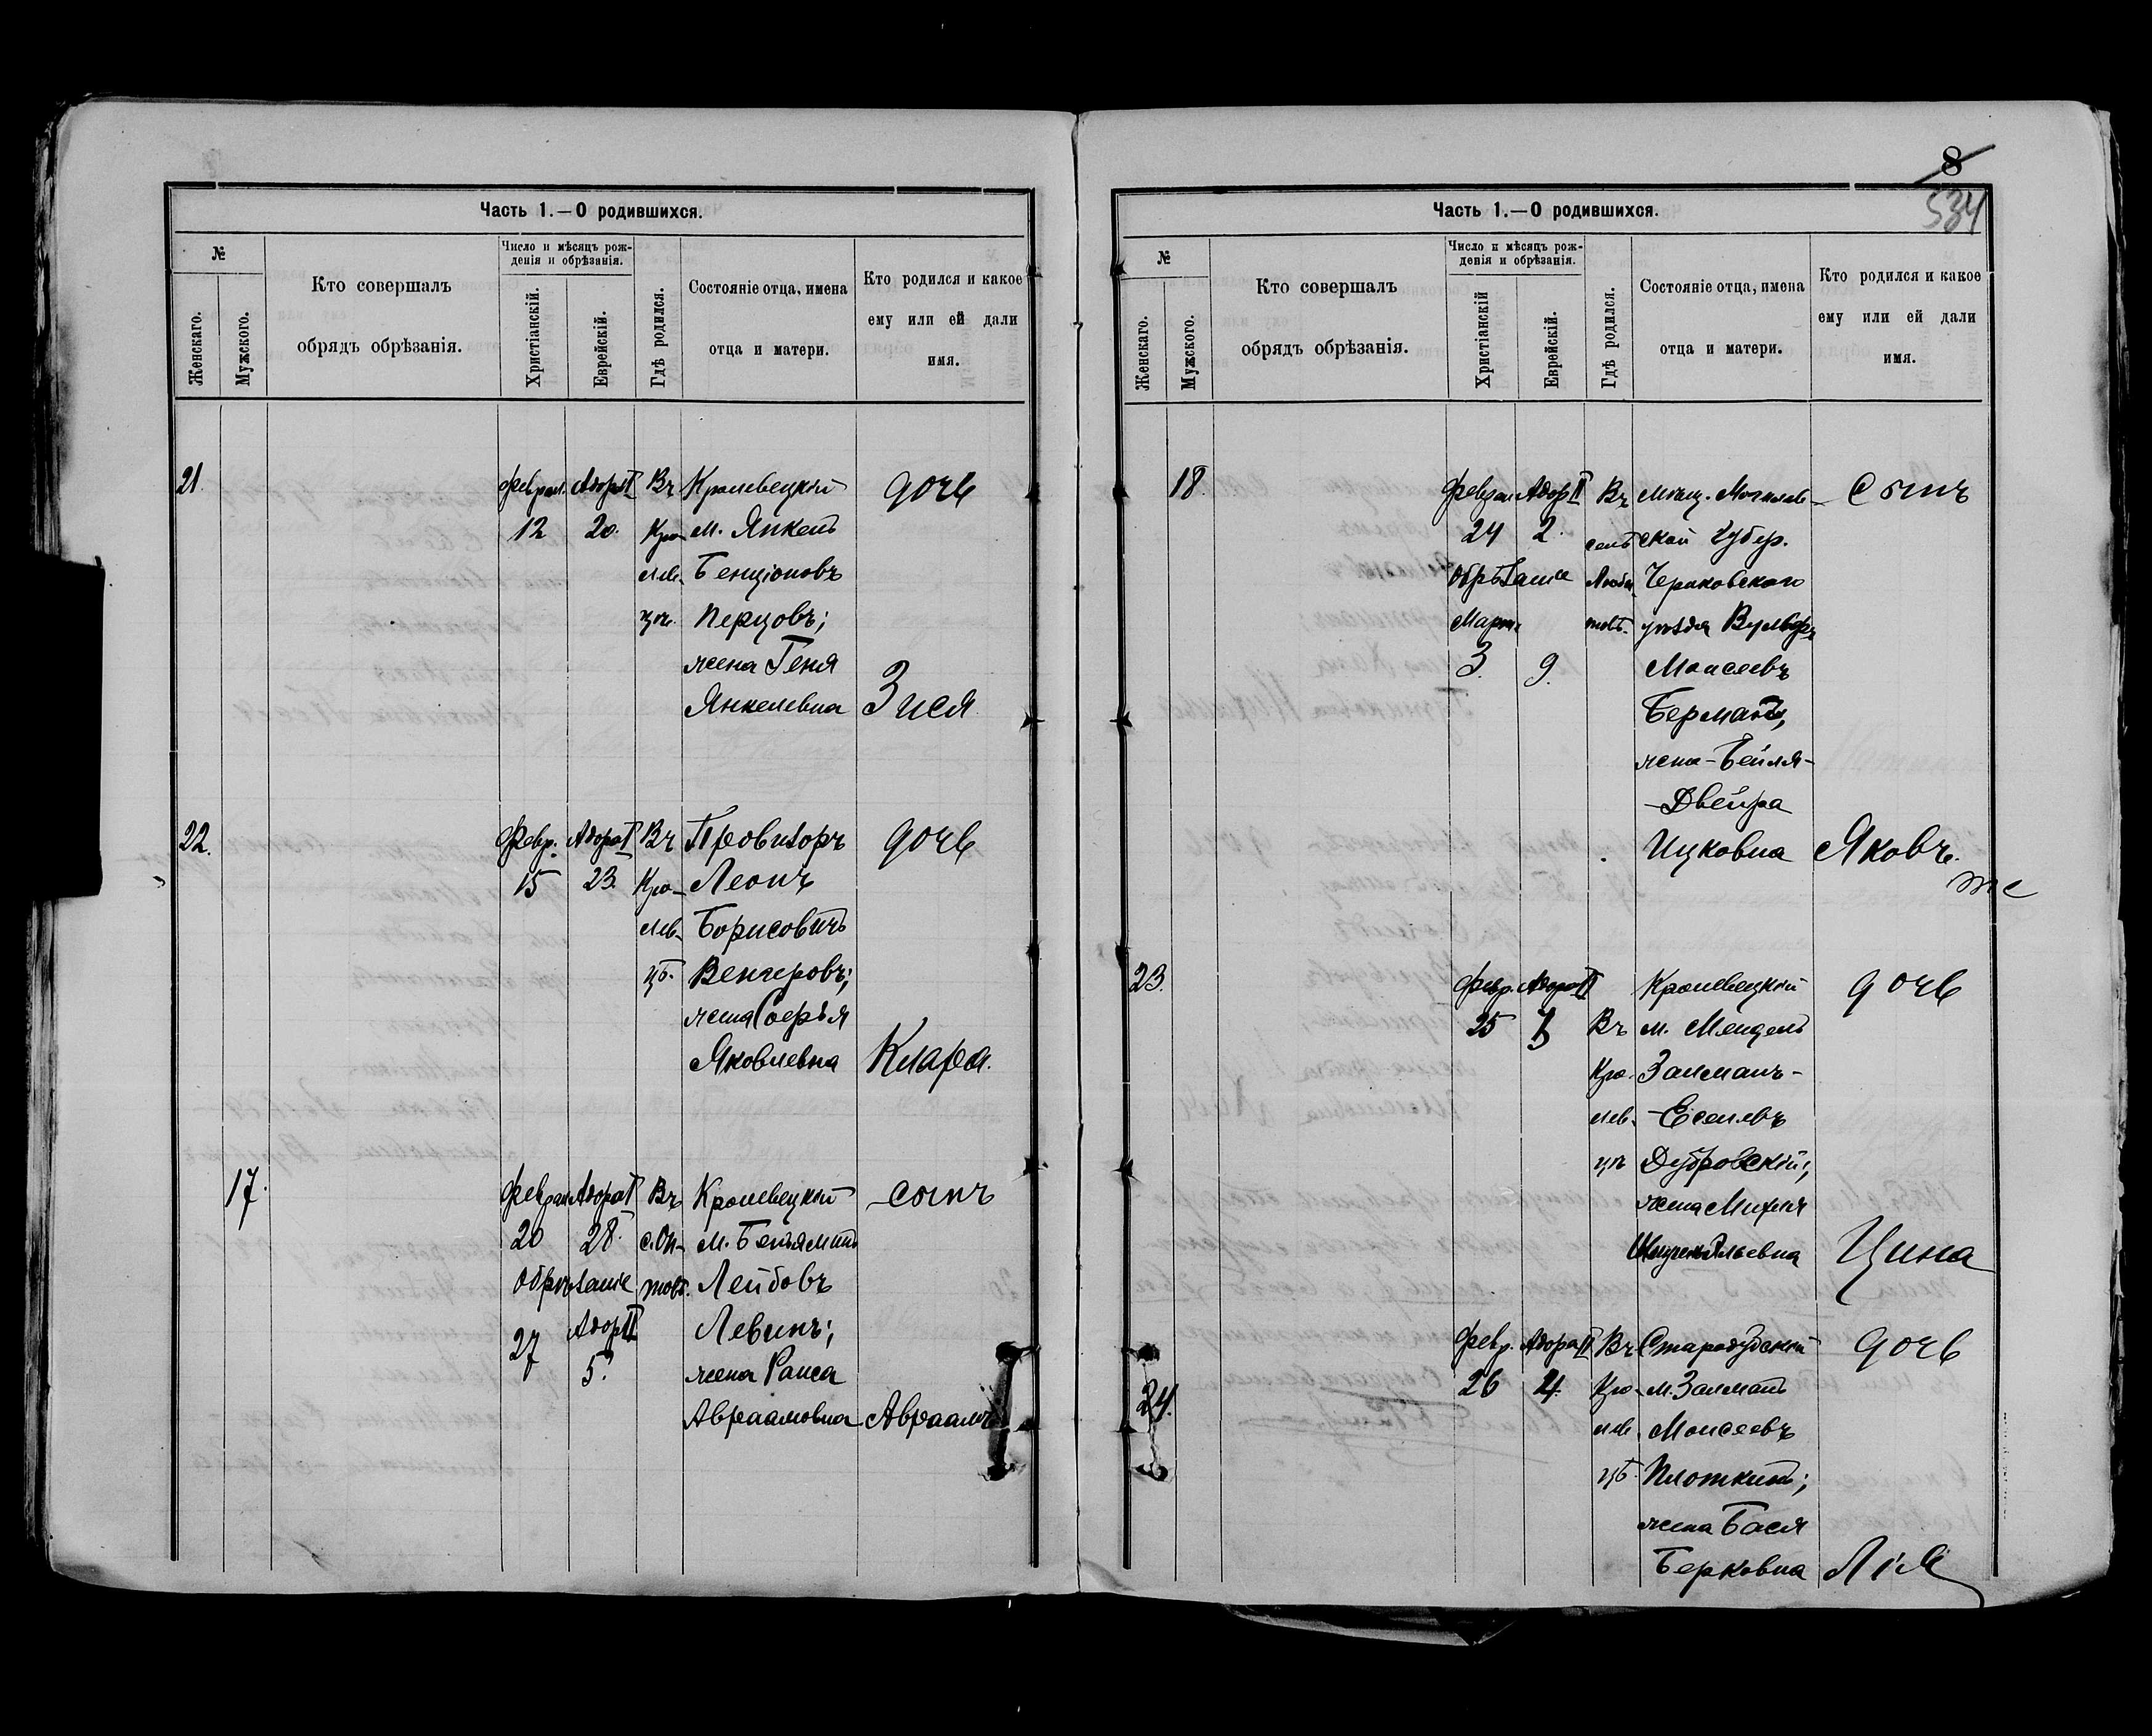 Часть 1.—О родившихся.
№
Женскаго.
Мужского.
Кто совершалъ
обрядъ обрѣзанія.
Число и мѣсяцъ рож-
денія и обрѣзанія.
Христіанскій.
Еврейскій.
Гдѣ родился.
Состояніе отца, имена
отца и матери.
Кто родился и какое
ему или ей дали
имя.
21. Феврал. Адора I Въ Кролевецкій дочь
12 20. Кро- м. Янкель
лев- Бенціоновъ
цѣ. Перцовъ;
жена Геня
Янкелевна Зися
22. Февр. Адора I Въ Провизоръ дочь
15 23. Кро- Леонъ
лев- Борисовичъ
цѣ. Венгеровъ;
жена Софья
Яковлевна Клара.
17. Феврал Адора I Въ Кролевецкій сынъ
20 28. с. Оп- м. Беньяминъ
Обрѣзаніе товѣ. Лейбовъ
27 Адор II Левинъ;
5. жена Раиса
Авраамовна Авраамъ
8
534
Часть 1.—О родившихся.
№
Женскаго.
Мужского.
Кто совершалъ
обрядъ обрѣзанія.
Число и мѣсяцъ рож-
денія и обрѣзанія.
Христіанскій
Еврейскій.
Гдѣ родился.
Состояніе отца, имена
отца и матери.
Кто родился и какое
ему или ей дали
имя.
18. Феврал Адор II Въ Мѣщ. Могилев- сынъ
24 2. селѣ ской губер.
Обрѣзаніе Чериковскаго
Марта уѣзда Вульфъ
3. 9. Моисеевъ
Берманъ,
жена-Бейля-
-Двейра
Ицковна Яковъ.
23. Февр. Адора II Кролевецкій дочь
25 3 Въ м. Мендель
Кро- Залманъ-
лев- -Еселевъ
цѣ Дубровскій;
жена
Цина
24. Февр. Адора II Въ Стародубскій дочь
26 4. Кро- м. Залманъ
лев- Моисеевъ
цѣ. Плоткинъ;
жена Бася
Берковна Лія